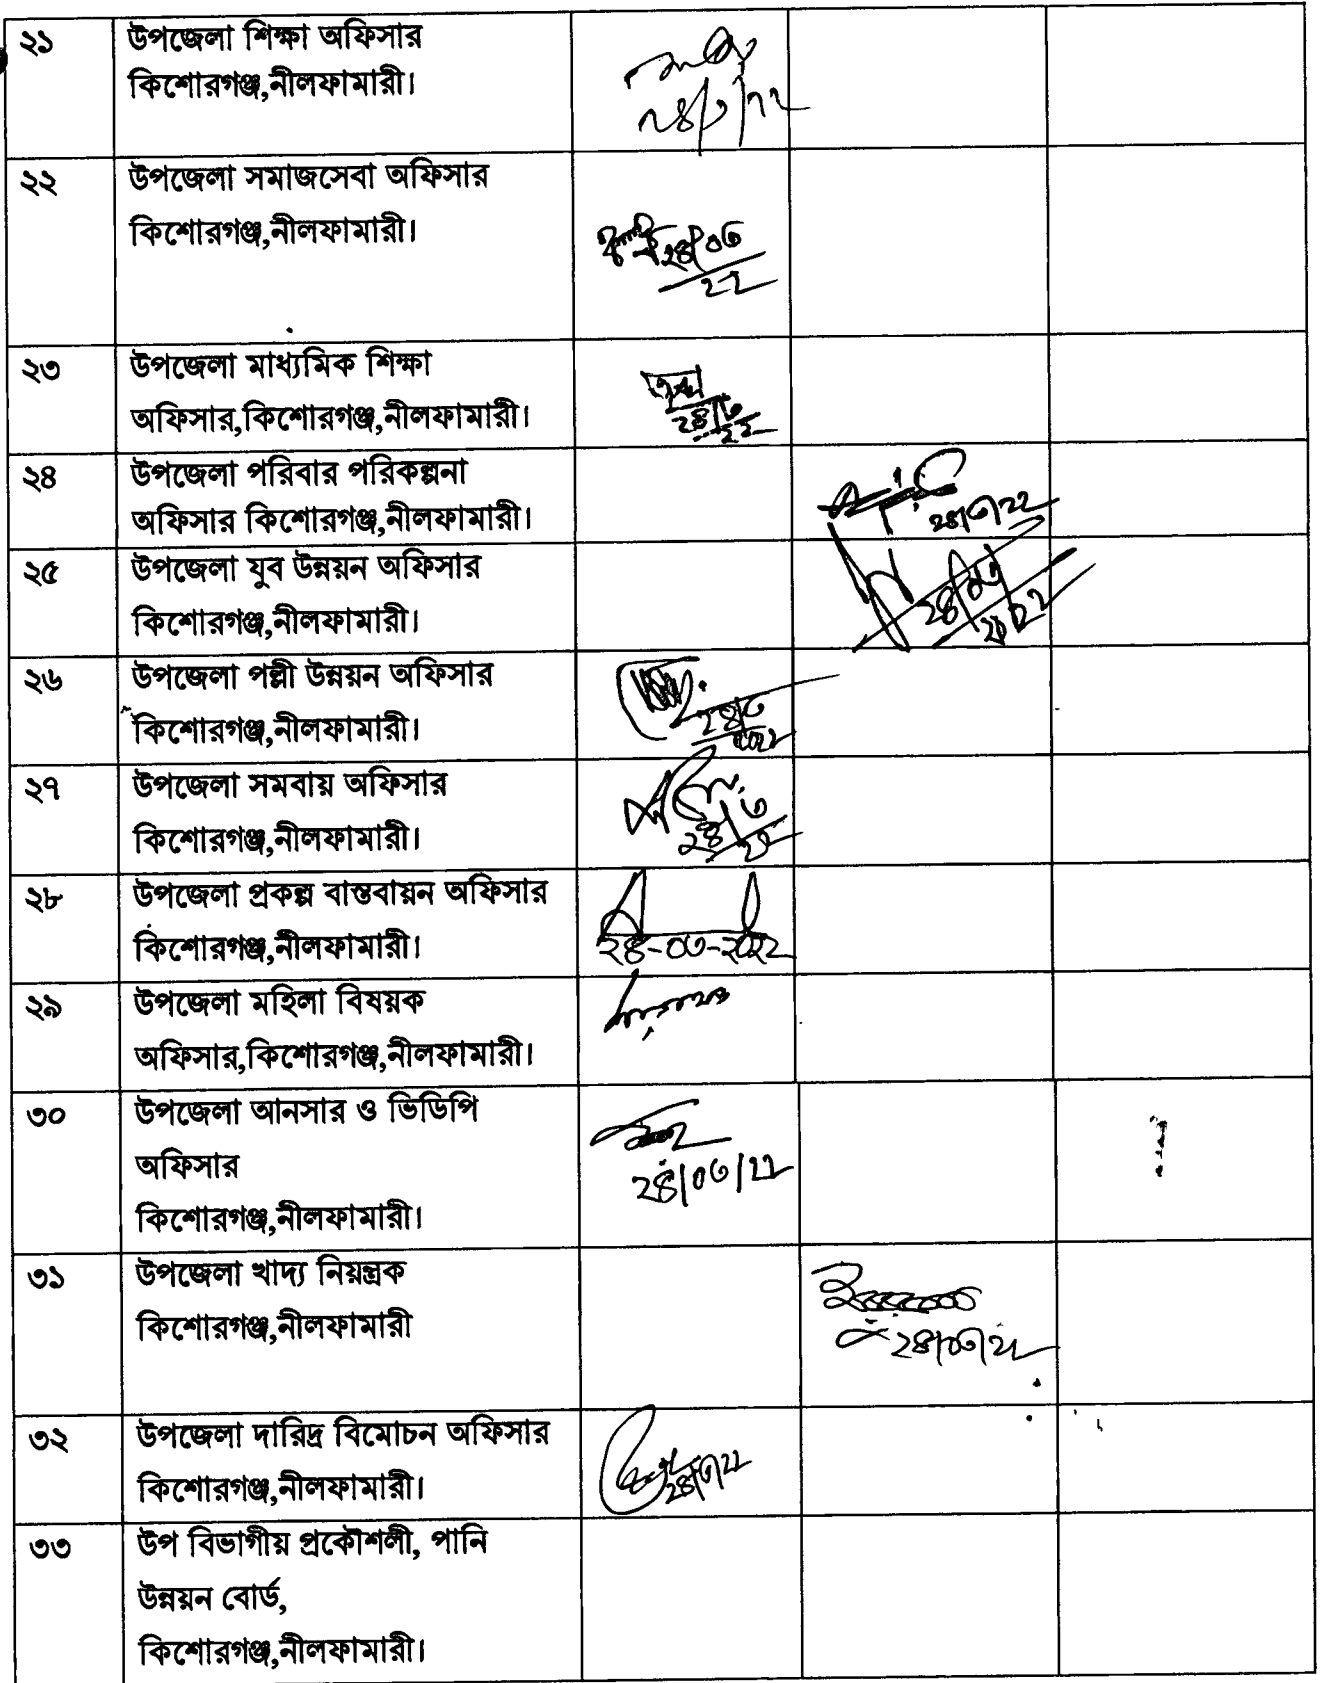 ২১
উপজেলা শিক্ষা অফিসার
কিশোরগঞ্জ,নীলফামারী।
২৪/৩/২২
২২
উপজেলা সমাজসেবা অফিসার
কিশোরগঞ্জ,নীলফামারী।
২৪/০৩
২২
২৩
উপজেলা মাধ্যমিক শিক্ষা
অফিসার,কিশোরগঞ্জ,নীলফামারী।
২৪/৩
২২
২৪
উপজেলা পরিবার পরিকল্পনা
অফিসার কিশোরগঞ্জ,নীলফামারী।
২৪/৩/২২
২৫
উপজেলা যুব উন্নয়ন অফিসার
কিশোরগঞ্জ,নীলফামারী।
২৪/০৩
২০২২
২৬
উপজেলা পল্লী উন্নয়ন অফিসার
কিশোরগঞ্জ,নীলফামারী।
২৪/৩
২০২২
২৭
উপজেলা সমবায় অফিসার
কিশোরগঞ্জ,নীলফামারী।
২৪/৩
২২
২৮
উপজেলা প্রকল্প বাস্তবায়ন অফিসার
কিশোরগঞ্জ,নীলফামারী।
২৪-০৩-২০২২
২৯
উপজেলা মহিলা বিষয়ক
অফিসার,কিশোরগঞ্জ,নীলফামারী।
৩০
উপজেলা আনসার ও ভিডিপি
অফিসার
কিশোরগঞ্জ,নীলফামারী।
২৪/০৩/২২
৩১
উপজেলা খাদ্য নিয়ন্ত্রক
কিশোরগঞ্জ,নীলফামারী
২৪/০৩/২২
৩২
উপজেলা দারিদ্র বিমোচন অফিসার
কিশোরগঞ্জ,নীলফামারী।
২৪/৩/২২
৩৩
উপ বিভাগীয় প্রকৌশলী, পানি
উন্নয়ন বোর্ড,
কিশোরগঞ্জ,নীলফামারী।